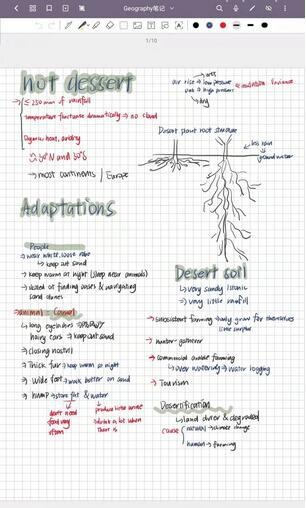 Geography笔记
1/10
hot dessert
→ ≤ 250 mm of rainfall
temperature fluctuate dramatically → no cloud
Organic heat, aridity
30°N and 30°S
→ most continents / Europe
air rise → low pressure
sink → high pressure
→ dry
Desert plant root structure
less rain
ground water
Adaptations
People
→ wear white, loose robe
↳ keep out sand
→ keep warm at night (sleep near animals)
→ skilled at finding oases & navigating
sand dunes
→ animal: Camel
→ long eyelashes
hairy ears → keep out sand
→ closing nostril
→ Thick fur → keep warm at night
→ Wide feet → walk better on sand
→ hump → store fat & water
don't need
food very
often
produce little urine
drink a lot when
there is
Desert soil
→ very sandy
→ very little rainfall
→ subsistent farming → only grow for themselves
little surplus
→ hunter-gatherer
→ commercial arable farming
↳ over watering → water logging
→ Tourism
Desertification
↳ land drier & degraded
cause natural → climate change
human → farming